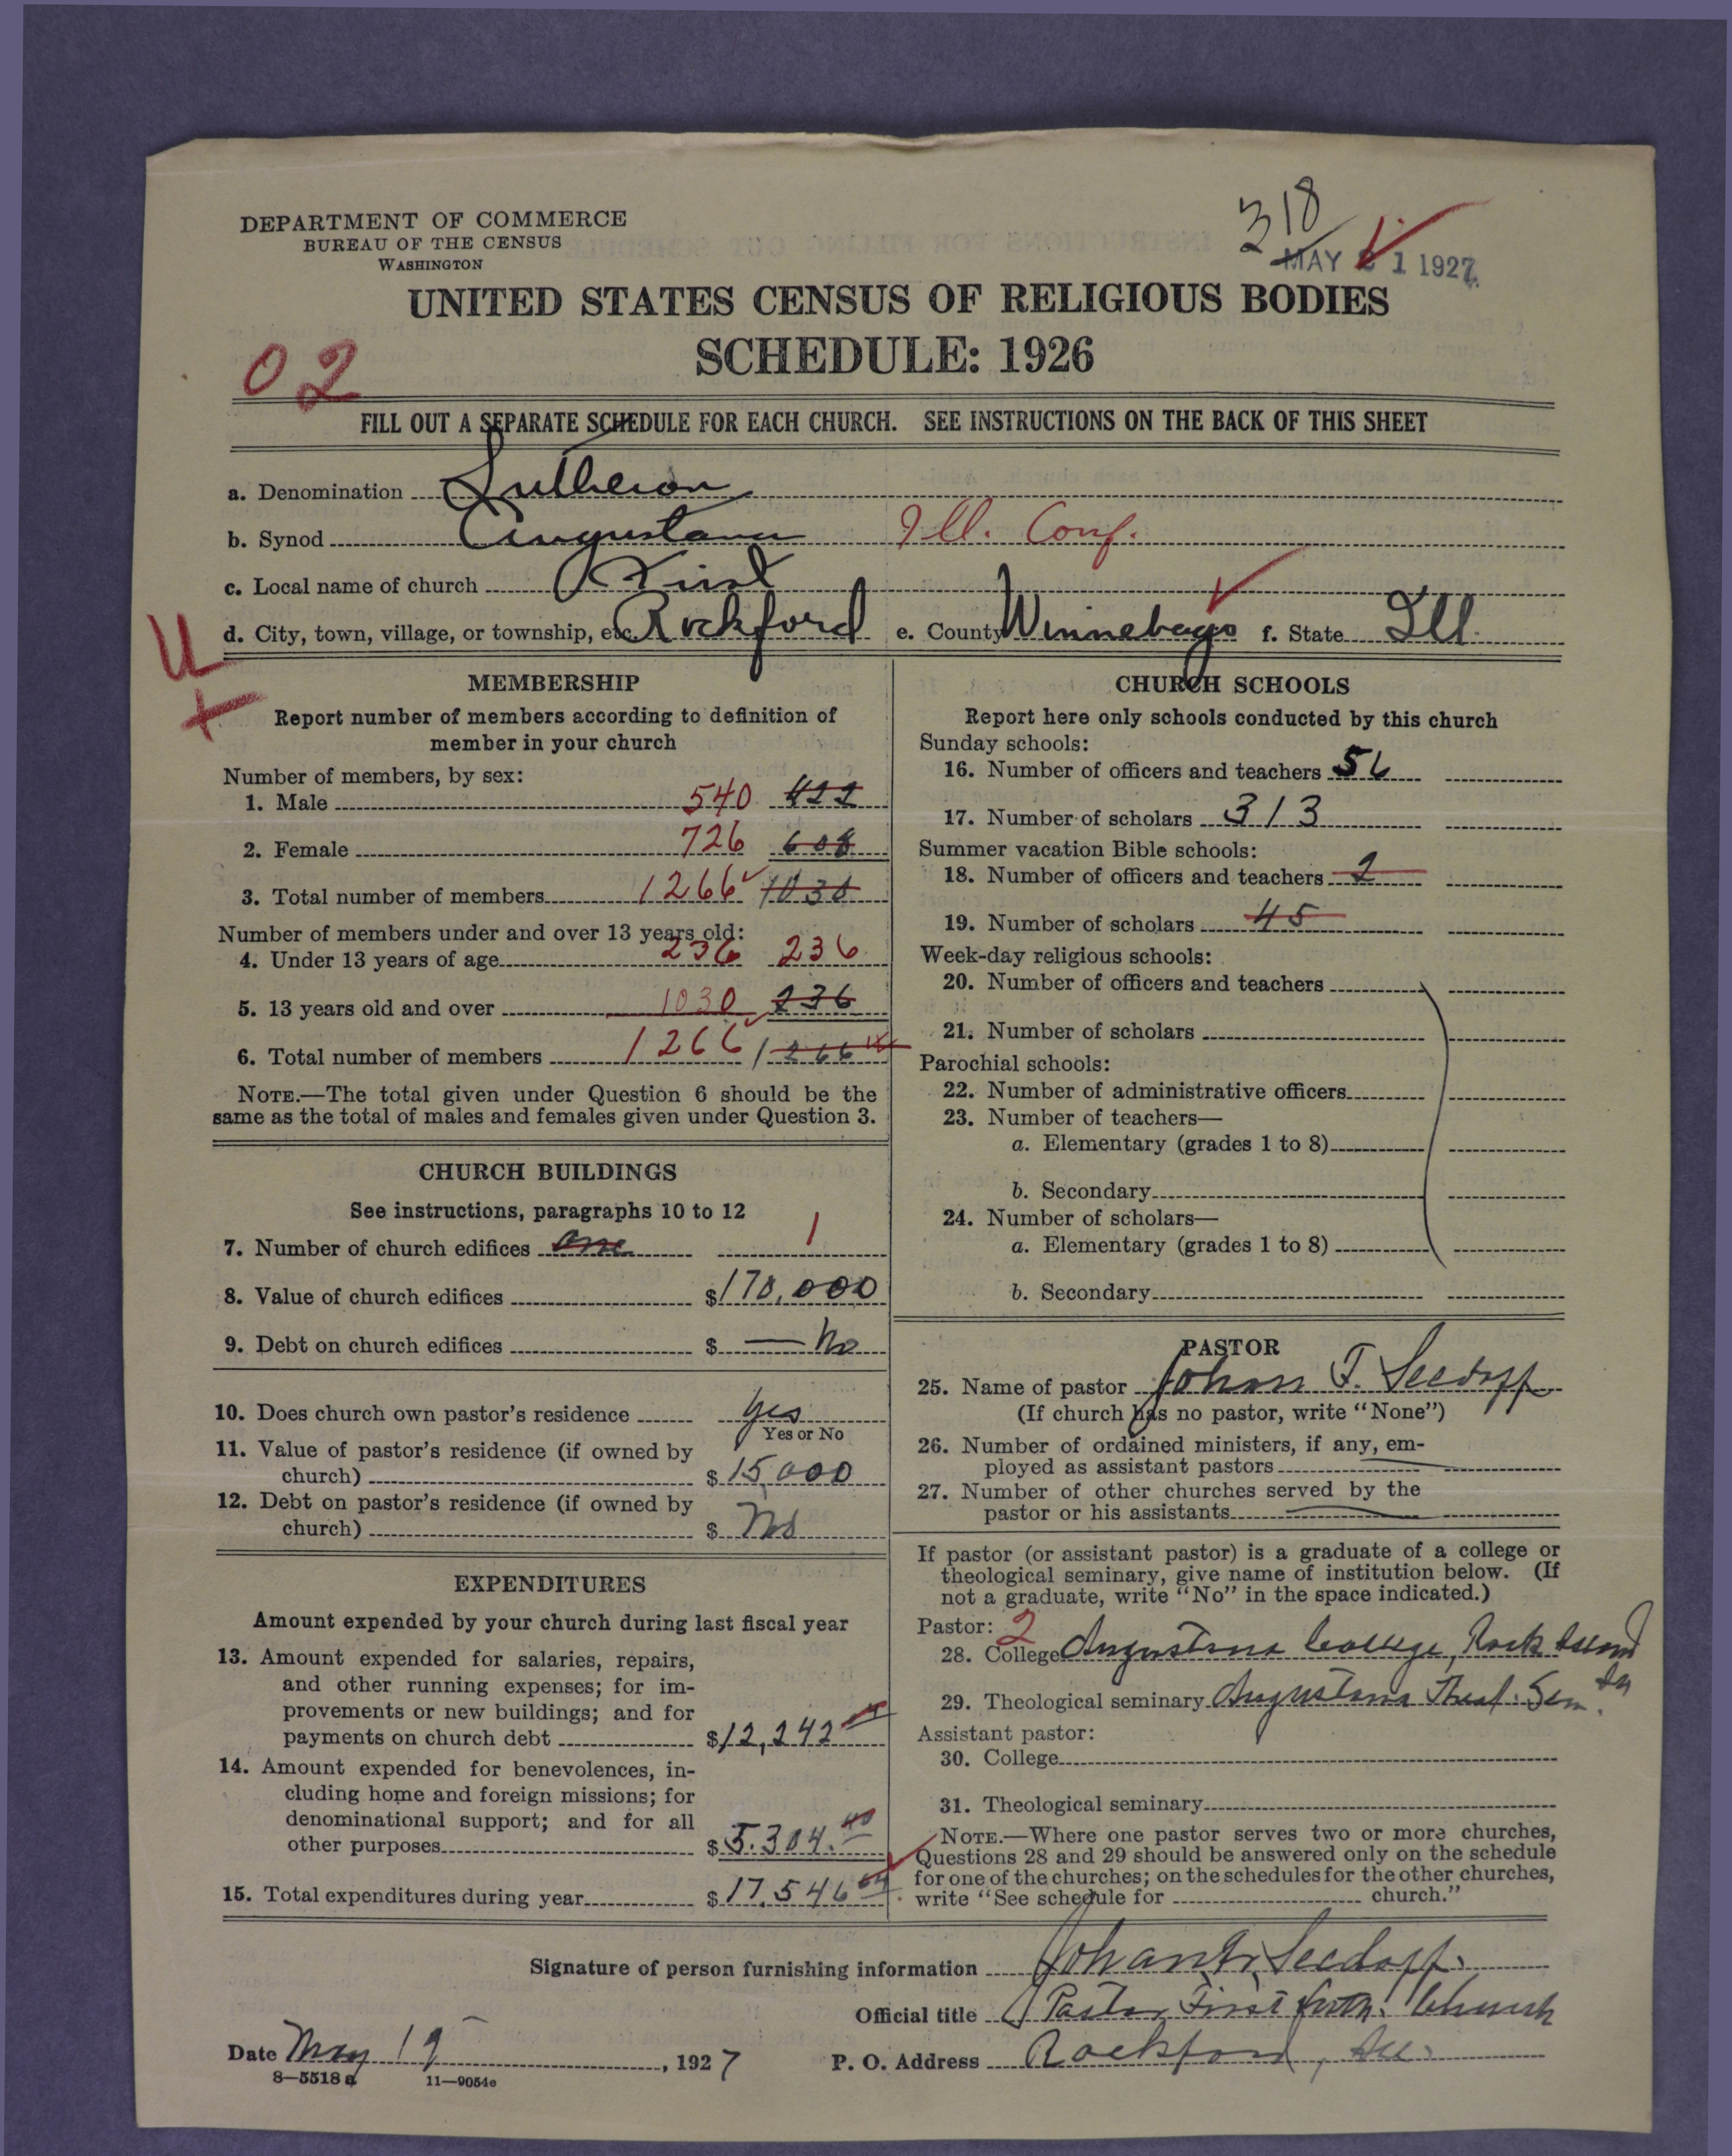 318
DEPARTMENT OF COMMERCE
BUREAU OF THE CENSUS
WASHINGTON
MAY 21 1927
UNITED STATES CENSUS OF RELIGIOUS BODIES
SCHEDULE: 1926
02
FILL OUT A SEPARATE SCHEDULE FOR EACH CHURCH. SEE INSTRUCTIONS ON THE BACK OF THIS SHEET
a. Denomination Lutheran
b. Synod Augustana Ill. Conf.
c. Local name of church First
d. City, town, village, or township, etc. Rockford e. County Winnebago f. State Ill.
MEMBERSHIP
Report number of members according to definition of
member in your church
Number of members, by sex:
1. Male 540 422
2. Female 726 608
3. Total number of members 1266 1030
Number of members under and over 13 years old:
4. Under 13 years of age 236 236
5. 13 years old and over 1030 236
6. Total number of members 1266 1266
NOTE.—The total given under Question 6 should be the
same as the total of males and females given under Question 3.
CHURCH BUILDINGS
See instructions, paragraphs 10 to 12
7. Number of church edifices one 1
8. Value of church edifices $170,000
9. Debt on church edifices $ — No
10. Does church own pastor's residence yes
Yes or No
11. Value of pastor's residence (if owned by
church) $15,000
12. Debt on pastor's residence (if owned by
church) $ No
EXPENDITURES
Amount expended by your church during last fiscal year
13. Amount expended for salaries, repairs,
and other running expenses; for im-
provements or new buildings; and for
payments on church debt $12,242
14. Amount expended for benevolences, in-
cluding home and foreign missions; for
denominational support; and for all
other purposes $5.304.40
15. Total expenditures during year $17,546
CHURCH SCHOOLS
Report here only schools conducted by this church
Sunday schools:
16. Number of officers and teachers 56
17. Number of scholars 313
Summer vacation Bible schools:
18. Number of officers and teachers 2
19. Number of scholars 45
Week-day religious schools:
20. Number of officers and teachers
21. Number of scholars
Parochial schools:
22. Number of administrative officers
23. Number of teachers—
a. Elementary (grades 1 to 8)
b. Secondary
24. Number of scholars—
a. Elementary (grades 1 to 8)
b. Secondary
PASTOR
25. Name of pastor Johan F. Seedoff
(If church has no pastor, write "None")
26. Number of ordained ministers, if any, em-
ployed as assistant pastors
27. Number of other churches served by the
pastor or his assistants
If pastor (or assistant pastor) is a graduate of a college or
theological seminary, give name of institution below. (If
not a graduate, write "No" in the space indicated.)
Pastor: 2
28. College Augustana College, Rock Island
29. Theological seminary Augustana Theol. Sem.
Assistant pastor:
30. College
31. Theological seminary
NOTE.—Where one pastor serves two or more churches,
Questions 28 and 29 should be answered only on the schedule
for one of the churches; on the schedules for the other churches,
write "See schedule for church."
Signature of person furnishing information Johan F. Seedoff.
Official title Pastor First Luth. Church
Date May 19, 1927 P. O. Address Rockford, Ill.
8—5518 a 11—9054e